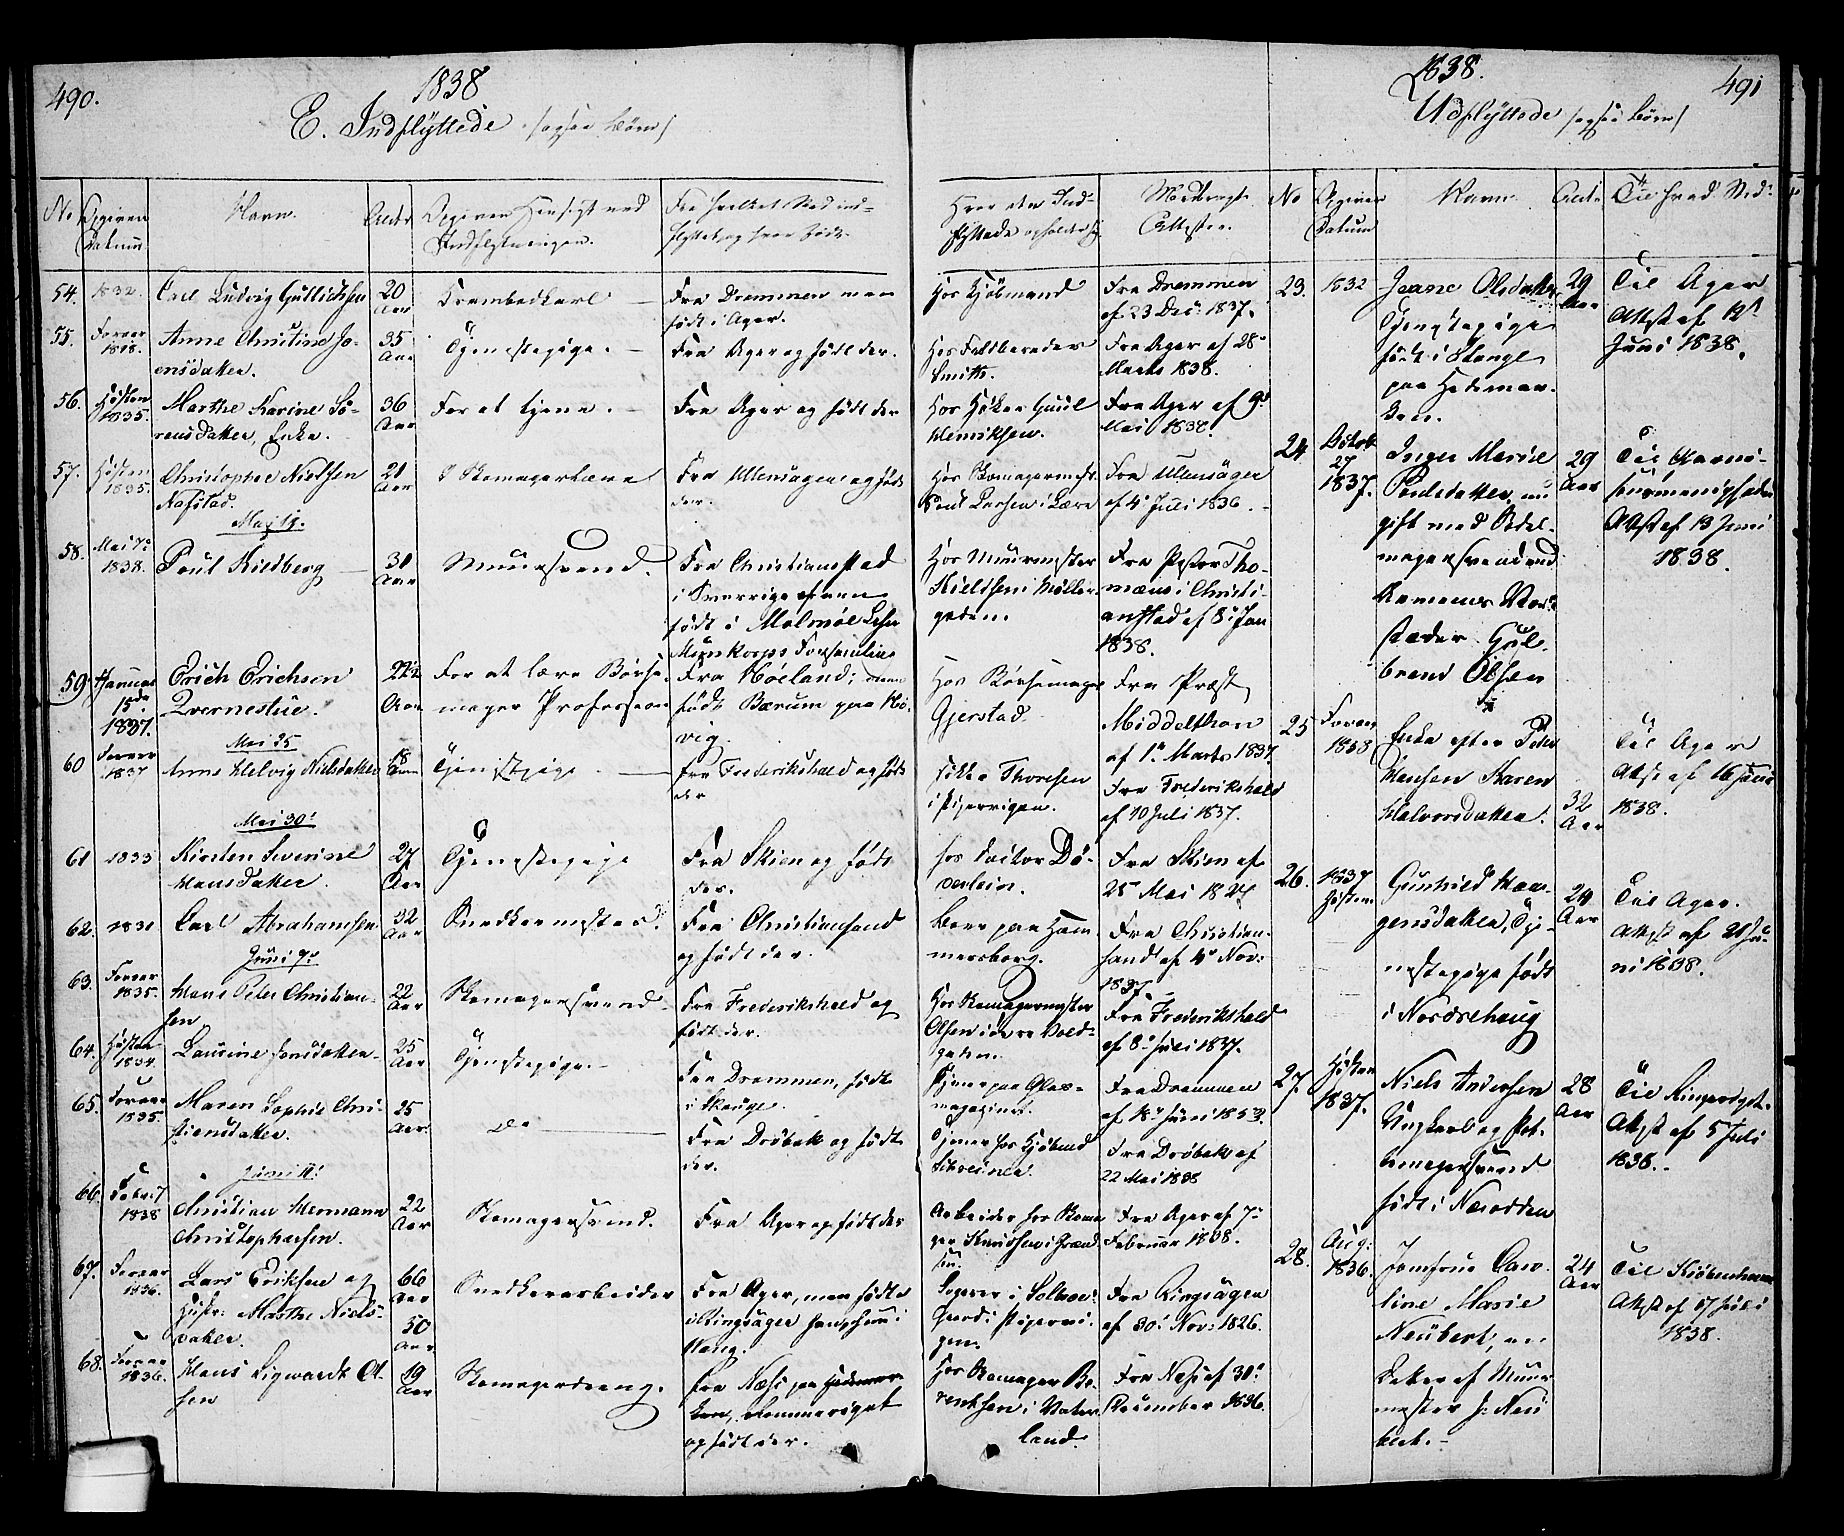 490.
1838
E. Indflyttede (ogsaa Børn)
No
Opgiven Datum
Navn.
Alder
Opgiven Hensigt med Indflytningen.
Fra hvilket Sted indflyttet, og hvor født.
Hvor den Indflyttede opholder sig
Medbragte Attester.
54. 1832. Carl Ludvig Gullichsen 20 Aar
Fra Drammen men født i Ager.
Hos Kjøbmand
Fra Drammen af 23 Dec: 1837.
55. Foraar 1818. Anne Christine Joensdatter. 35 Aar
Tjenestepige.
Fra Ager og født der.
Hos Feldbereder Smith.
Fra Ager af 28 Marts 1838.
56. Høsten 1835. Marthe Karine Sørensdatter, Enke. 36 Aar
For at tjene.
Fra Ager og født der
Hos Høker Gunul Henriksen.
Fra Ager af 9d Mai 1838.
57. Høsten 1835. Christopher Nielsen Nafstad. 21 Aar
I Skomagerlære
Fra Ullensager og født der.
Hos Skomagermest. Poul Larsen i Lære
Fra Ullensager af 4d Juli 1836.
Mai 19.
58. Mai 7d 1838. Poul Kildberg 31 Aar
Muursvend.
Fra Christianstad i Sverrige men født i Malmøe Lehn
Hos Muurmester Nielsen i Møllergaden.
Fra Pastor Thomæus i Christianstad af 8d Jan 1838.
59. Januar 15de 1837. Erich Erichsen Qvernestue. 22½ Aar
For at lære Børsemager Profession
Fra Høeland; men født Bærum paa Høvig.
Hos Børsemager Gjerstad.
Fra Præst Middelthon af 1d Marts 1837.
Mai 25
60 Foraar 1837 Anne Helvig Nielsdatter 18 Aar
Tjenestepige.
fra Frederikshald og født der
Thoresen i Pipervigen.
Fra Frederikshald af 10 Juli 1837.
Mai 30d
61 1833 Kirsten Severine Hansdatter. 27 Aar
Tjenestepige
Fra Skien og født der.
hos Doctor Døderlein.
Fra Skien af 25 Mai 1827
62. 1831 Carl Abrahamsen 32 Aar
Snedkermester.
Fra Christiansand og født der.
Boer paa Hammersborg.
Fra Christiansand af 4d Nov: 1837.
Juni 9d
63. Foraar 1835. Hans Peter Christiansen 22 Aar
Skomagersvend.
Fra Frederikshald og født der.
Hos Skomagermester Olsen i øvre Voldgaden.
Fra Frederikshald af 8d Juli 1837.
64. Høsten 1834. Laurine Jensdatter. 25 Aar
Tjenestepige.
Fra Drammen, født i Skouge.
Tjener paa Glasmagazinet.
Fra Drammen af 18d Juni 1853.
65. Foraar 1835. Maren Sophie Christiansdatter. 25 Aar.
Do
Fra Drøbak og født der.
Tjener hos Kjøbmd Schreiner.
Fra Drøbak af 22 Mai 1838
Juni 11d
66. Febr: 7 1838 Christian Hermann Christophersen. 22 Aar
Skomagersvend.
Fra Ager og født der
Arbeider hos Skomager Knudsen i Grændsen.
Fra Ager af 7d Februar 1838.
67. Foraar 1836. Lars Eriksen og Hustr: Marthe Nielsdatter. 66 Aar 50 Aar
Snedkerarbeider
Fra Ager, men født i Ringsager, hun i Vang.
Logerer i Pipervigen.
Fra Ringsager af 30d Nov: 1826.
68. Foraar 1836. Hans Sigwardt Olsen 19 Aar
Skomagerdreng.
fra Næs paa Hedemarken, Rommeriget og født der.
Hos Skomager Berentsen i Vaterland.
Fra Næs af 31d December 1836.
1838.
491
Udflyttede (ogsaa Børn)
No
Opgiven Datum
Navn
Alder
Til hvad Sted.
23. 1832 Jeane Olsdatter Tjenestepige født i Stange paa Hedemarken. 29 Aar
Til Ager Attest af 12d Juni 1838.
24. Octob. 27 1837. Inger Marie Poulsdatter, nu gift med Sadelmagersvend Gulbrand Olsen 29 Aar
Attest af 13 Juni 1838.
25 Foraar 1838 Enke efter Peder Hansen Karen Halvorsdatter. 32 Aar
Til Ager Attest af 16 Juni 1838.
26. 1837 Høsten Gunhild Haagensdatter, Tjenestepige født i Norderhoug 24 Aar
Til Ager. Attest af 21 Juni 1838.
27. Høsten 1837. Niels Andersen Ungkarl og Pottemagersvend født i Næsodden 28 Aar
Til Ringeriget. Attest af 5 Juli 1838.
28. Aug: 1836. Jomfrue Caroline Marie Neubert, en Datter af Muurmester J: Neubert. 24 Aar
Til Kiøbenhavn Attest af 17 Juli 1838.